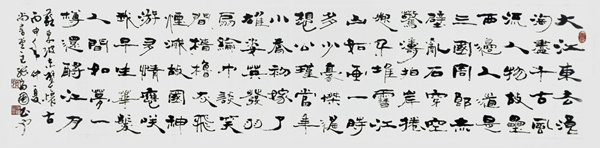 大江東去浪
淘盡千古風
流人物故壘
西邊人道是
三國周郎赤
壁亂石穿空
驚濤拍岸捲
起千堆雪江
山如畫一時
多少豪傑
想公瑾當年
小喬初嫁了
雄姿英發羽
扇綸巾談笑
間檣櫓灰飛
煙滅故國神
游多情應笑
我早生華髮
人間如夢一
樽還酹江月
蘇東坡赤壁懷古
丙申年仲夏